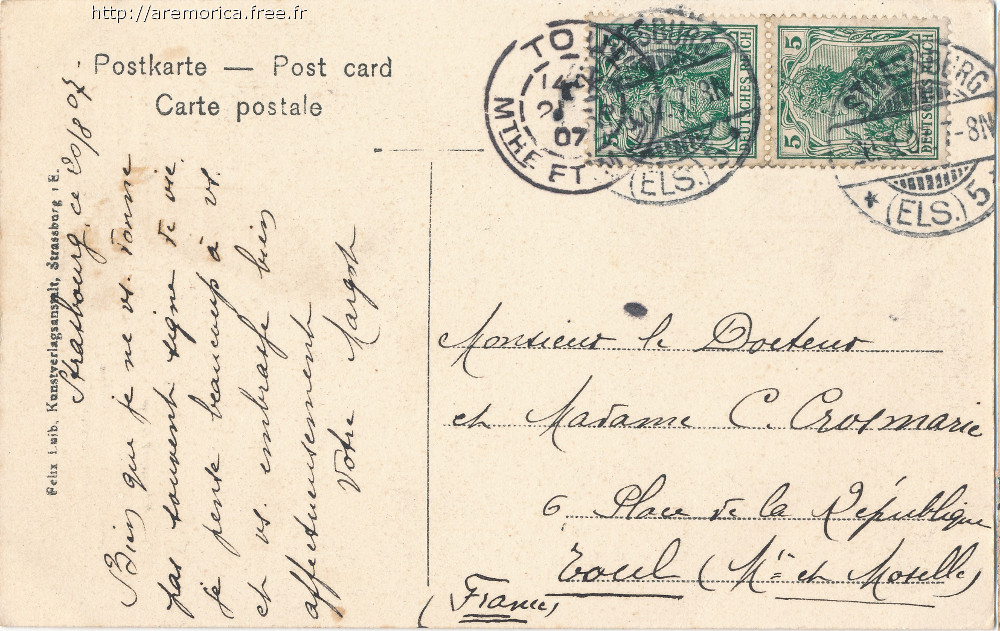 http://aremorica.free.fr
Postkarte — Post card
Carte postale
Felix Luib, Kunstverlagsanstalt, Strassburg i. E.
Strasbourg, ce 20/8 07.
Bien que je ne vs. donne
pas souvent signe de vie
je pense beaucoup à vs.
et vs. embrasse bien
affectueusement
Votre Margot
TOUL
07
MTHE ET
STRASSBURG
8N
(ELS.)
5
DEUTSCHES REICH
5
DEUTSCHES REICH
STRASSBURG
-8N
* (ELS.) 5
Monsieur le Docteur
et Madame C. Crosmarie
6 Place de la République
Toul (Mthe et Moselle)
(France)